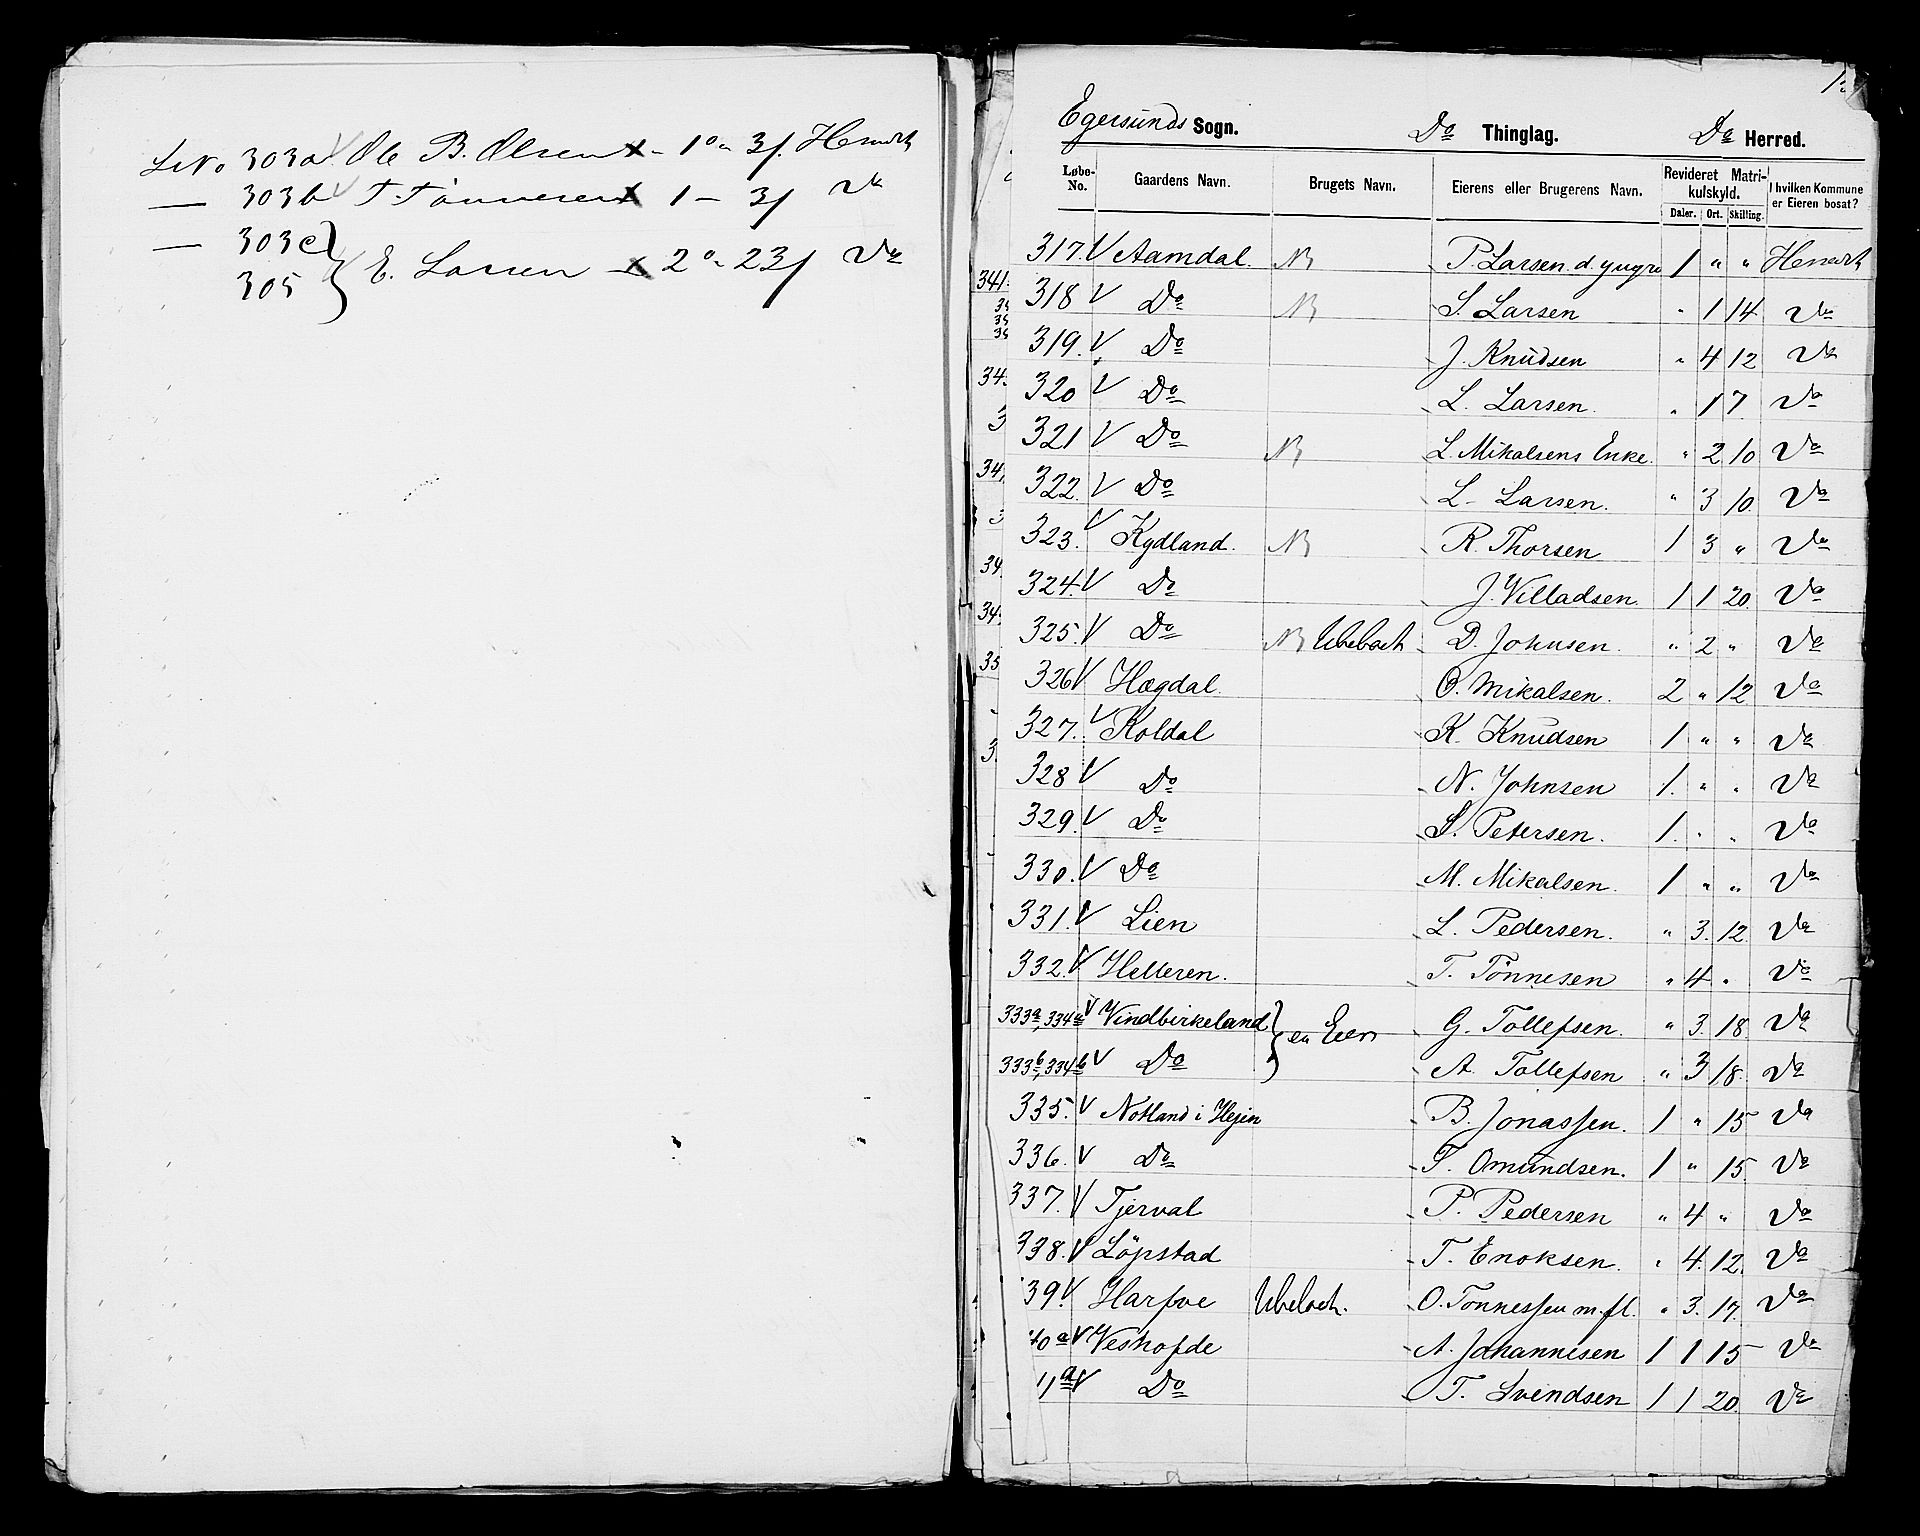 LNo 303a. Ole B. Olsen x - 1 o " 3 s. Heraadt
— 303b T. Tönnesen x 1 - 3 s Do
— 303c } E. Larsen - x 2 o " 23 s Do
305
Egersunds Sogn. Do Thinglag. Do Herred.
Løbe-No. Gaardens Navn. Brugets Navn. Eierens eller Brugerens Navn. Revideret Matrikulskyld. I hvilken Kommune er Eieren bosat?
Daler. Ort. Skilling.
317. V Aamdal. NB P. Larsen d. yngre 1 " " Heraadt
318 V Do NB S. Larsen " 1 14 Do
319. V Do J. Knudsen " 4 12 Do
320 V Do L. Larsen. " 1 7 Do
321 V Do NB L. Mikalsens Enke. " 2 10 Do
322. V Do L. Larsen. " 3 10. Do
323. V Kydland. NB R. Thorsen 1 3 " Do
324. V Do J. Villadsen. 1 1 20. Do
325. V Do NB Ubeboet D. Johnsen. " 2 " Do
326 V Hægdal. O. Mikalsen. 2 " 12 Do
327. V Koldal K. Knudsen 1 " " Do
328 V Do N. Johnsen 1. " " Do
329. V Do S. Petersen. 1. " " Do
330. V Do M. Mikalsen. 1 " " Do
331. V Lien L. Pedersen. " 3. 12. Do
332. V Helleren. T. Tönnesen " 4 " Do
333a, 334a V Vindbirkeland } en Eier G. Tollefsen. " 3. 18. Do
333b, 334b V Do A. Tollefsen " 3 18. Do
335. V Notland i Hejin B. Jonassen. 1 " 15 Do
336. V Do T. Omundsen. 1 " 15. Do
337. V Tjerval P. Pedersen " 4 " Do
338. V Löpstad T. Enoksen. " 4. 12. Do
39. V Harfoe Ubeboet. O. Tonnessen m. fl. " 3. 17. Do
40a V Veshofde A. Johannesen 1 1 15 Do
a V Do T. Svendsen 1 1 20. Do